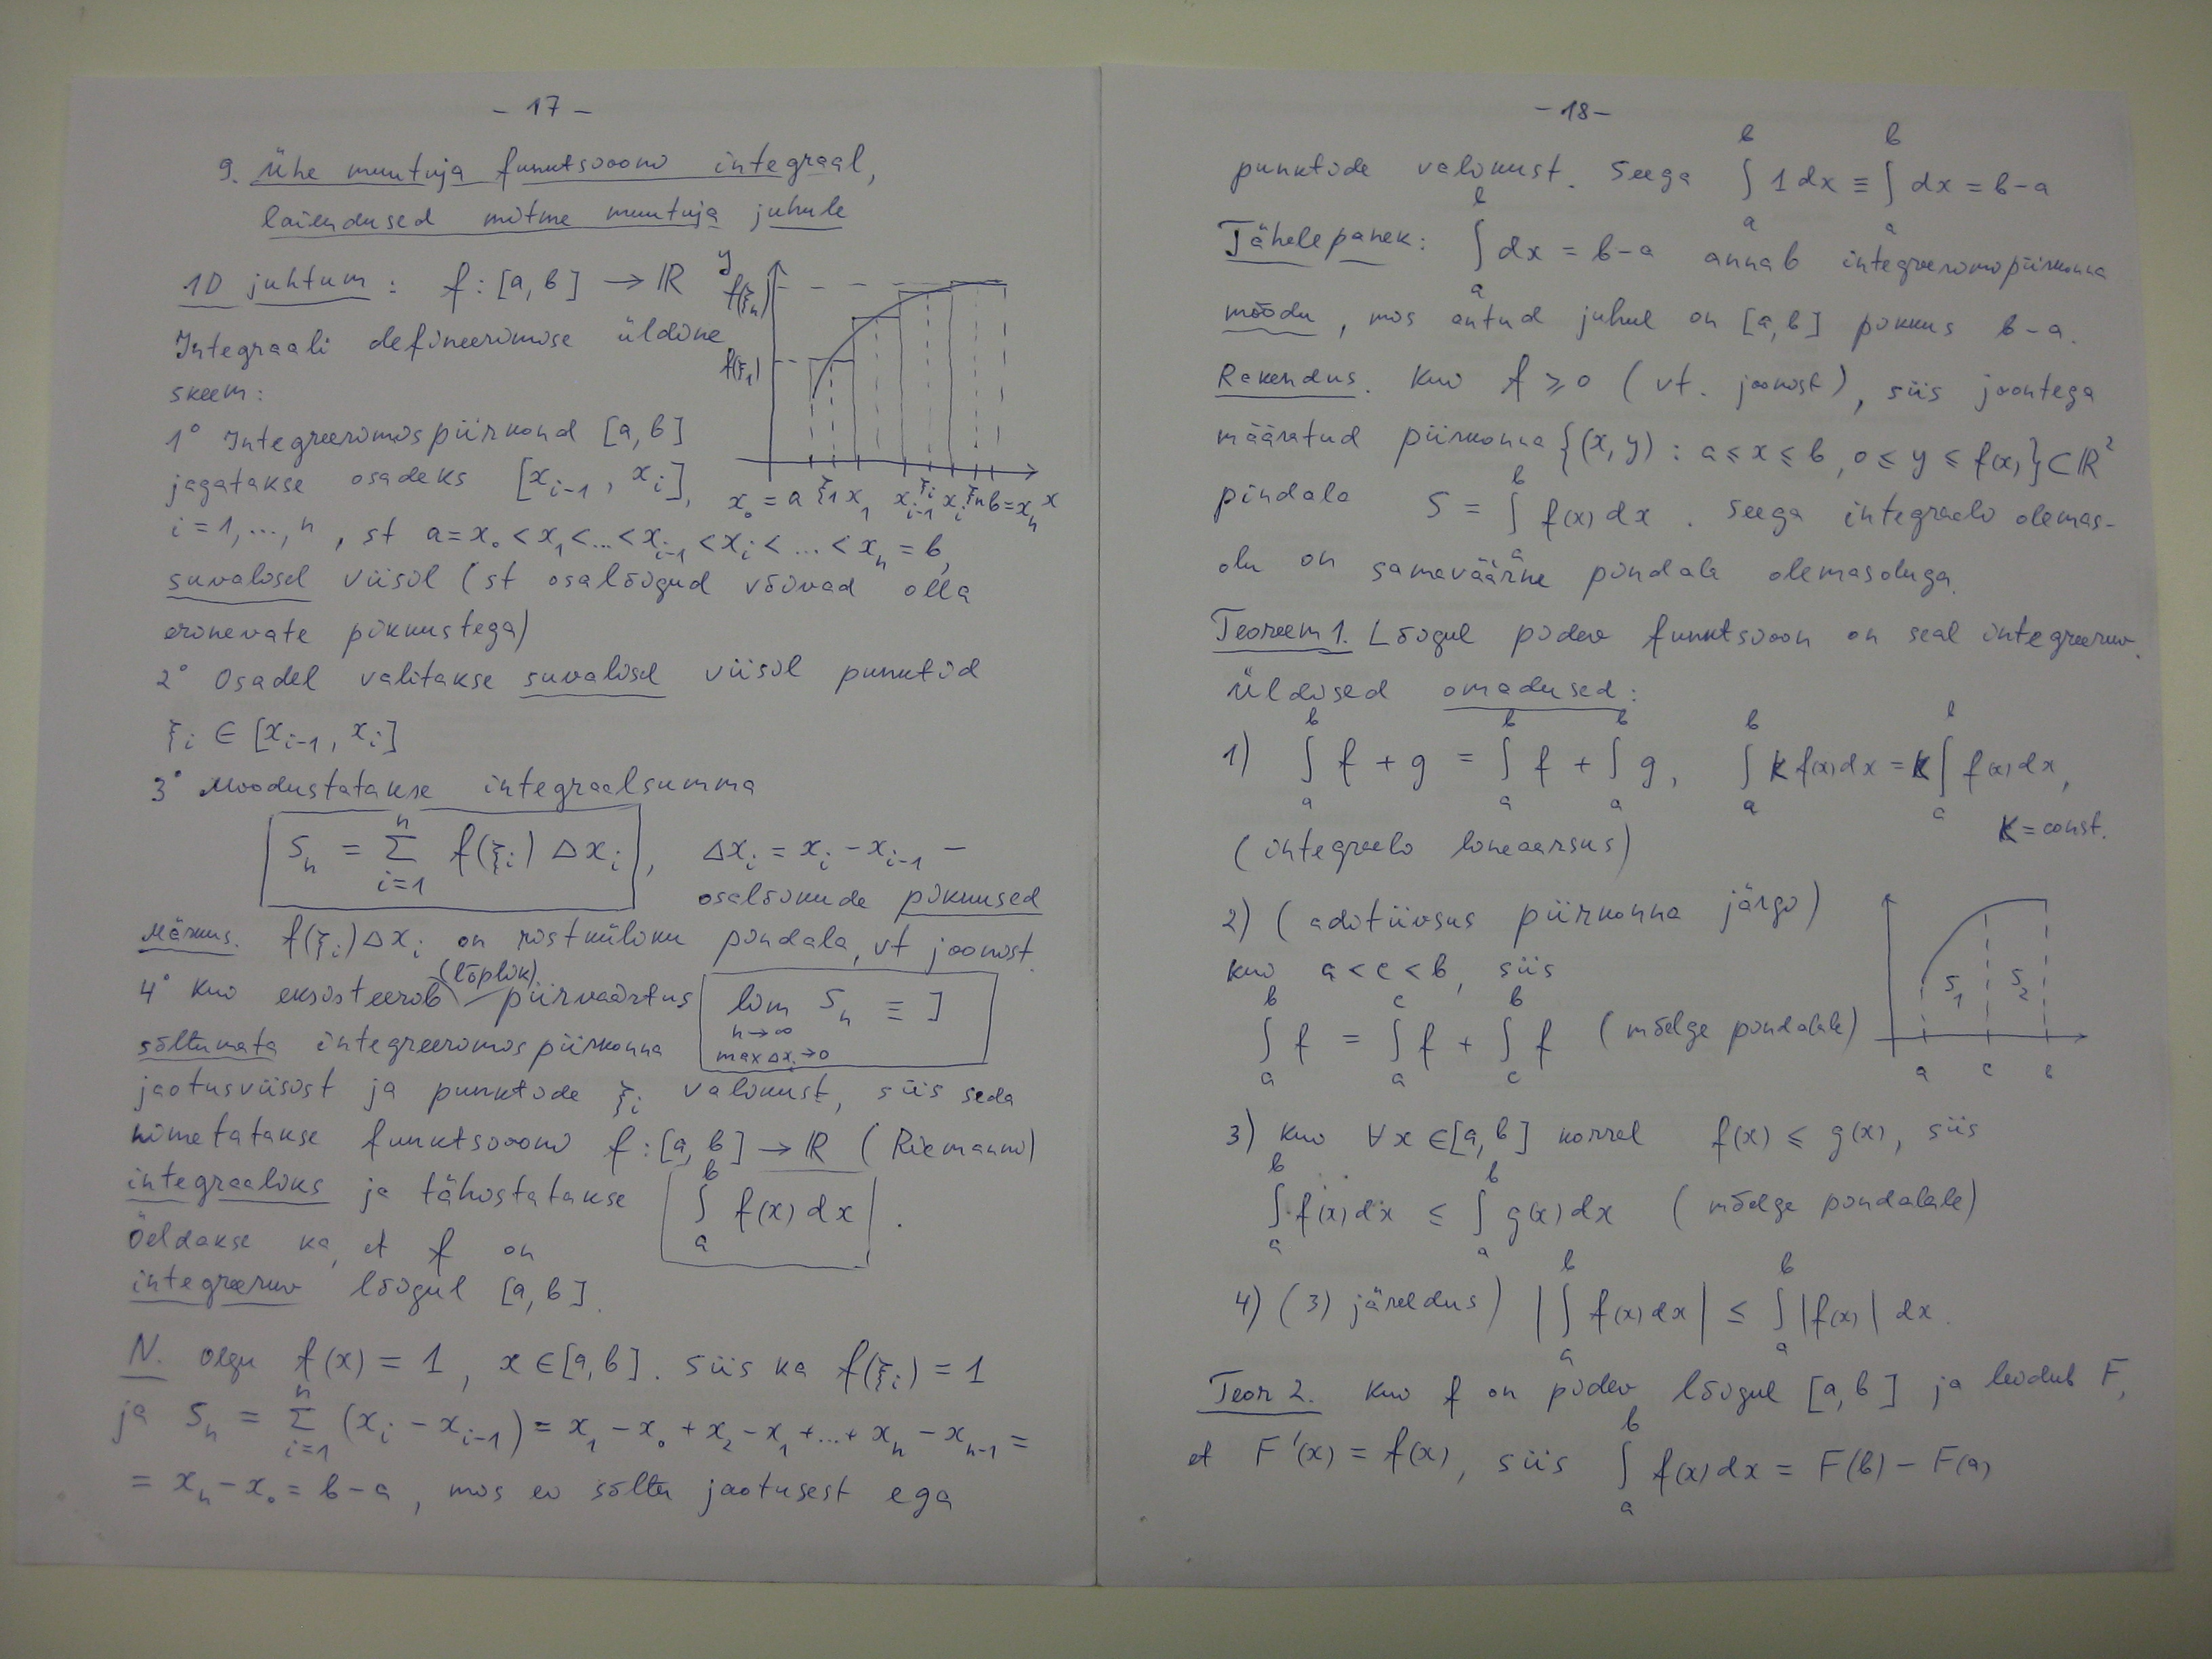 - 17 -
9. Ühe muutuja funktsiooni integraal,
laiendused mitme muutuja juhule
1D juhtum : f : [a, b] → ℝ
Integraali defineerimise üldine
skeem:
1° Integreerimispiirkond [a, b]
jagatakse osadeks [x_{i-1}, x_i],
i = 1, ..., n, st a = x_0 < x_1 < ... < x_{i-1} < x_i < ... < x_n = b,
suvalisel viisil (st osalõigud võivad olla
erinevate pikkustega)
2° Osadel valitakse suvalisel viisil punktid
ξ_i ∈ [x_{i-1}, x_i]
3° Moodustatakse integraalsumma
S_n = Σ_{i=1}^{n} f(ξ_i) Δx_i, Δx_i = x_i - x_{i-1} -
osalõikude pikkused
Märkus. f(ξ_i)Δx_i on ristküliku pindala, vt joonist.
4° Kui eksisteerib (lõplik) piirväärtus lim_{n→∞, max Δx_i→0} S_n ≡ I
sõltumata integreerimispiirkonna
jaotusviisist ja punktide ξ_i valikust, siis seda
nimetatakse funktsiooni f : [a, b] → ℝ (Riemanni)
integraaliks ja tähistatakse ∫_a^b f(x) dx.
Öeldakse ka, et f on
integreeruv lõigul [a, b].
N. Olgu f(x) = 1, x ∈ [a, b]. Siis ka f(ξ_i) = 1
ja S_n = Σ_{i=1}^{n} (x_i - x_{i-1}) = x_1 - x_0 + x_2 - x_1 + ... + x_n - x_{n-1} =
= x_n - x_0 = b - a, mis ei sõltu jaotusest ega
y
f(ξ_n)
f(ξ_1)
x_0 = a ξ_1 x_1 x_{i-1} ξ_i x_i ξ_n b = x_n x
- 18 -
punktide valikust. Seega ∫_a^b 1 dx ≡ ∫_a^b dx = b - a
Tähelepanek: ∫_a^b dx = b - a annab integreerimispiirkonna
mõõdu, mis antud juhul on [a, b] pikkus b - a.
Rakendus. Kui f ⩾ 0 (vt. joonist), siis joontega
määratud piirkonna {(x, y) : a ⩽ x ⩽ b, 0 ⩽ y ⩽ f(x)} ⊂ ℝ²
pindala S = ∫_a^b f(x) dx. Seega integraali olemas-
olu on samaväärne pindala olemasoluga.
Teoreem 1. Lõigul pidev funktsioon on seal integreeruv.
Üldised omadused:
1) ∫_a^b f + g = ∫_a^b f + ∫_a^b g, ∫_a^b k f(x) dx = k ∫_a^b f(x) dx,
k = const.
(integraali lineaarsus)
2) (aditiivsus piirkonna järgi)
Kui a < c < b, siis
∫_a^b f = ∫_a^c f + ∫_c^b f (mõelge pindalale)
S_1 S_2
a c b
3) Kui ∀x ∈ [a, b] korral f(x) ⩽ g(x), siis
∫_a^b f(x) dx ≤ ∫_a^b g(x) dx (mõelge pindalale)
4) (3) järeldus) |∫_a^b f(x) dx| ≤ ∫_a^b |f(x)| dx.
Teor 2. Kui f on pidev lõigul [a, b] ja leidub F,
et F'(x) = f(x), siis ∫_a^b f(x) dx = F(b) - F(a)